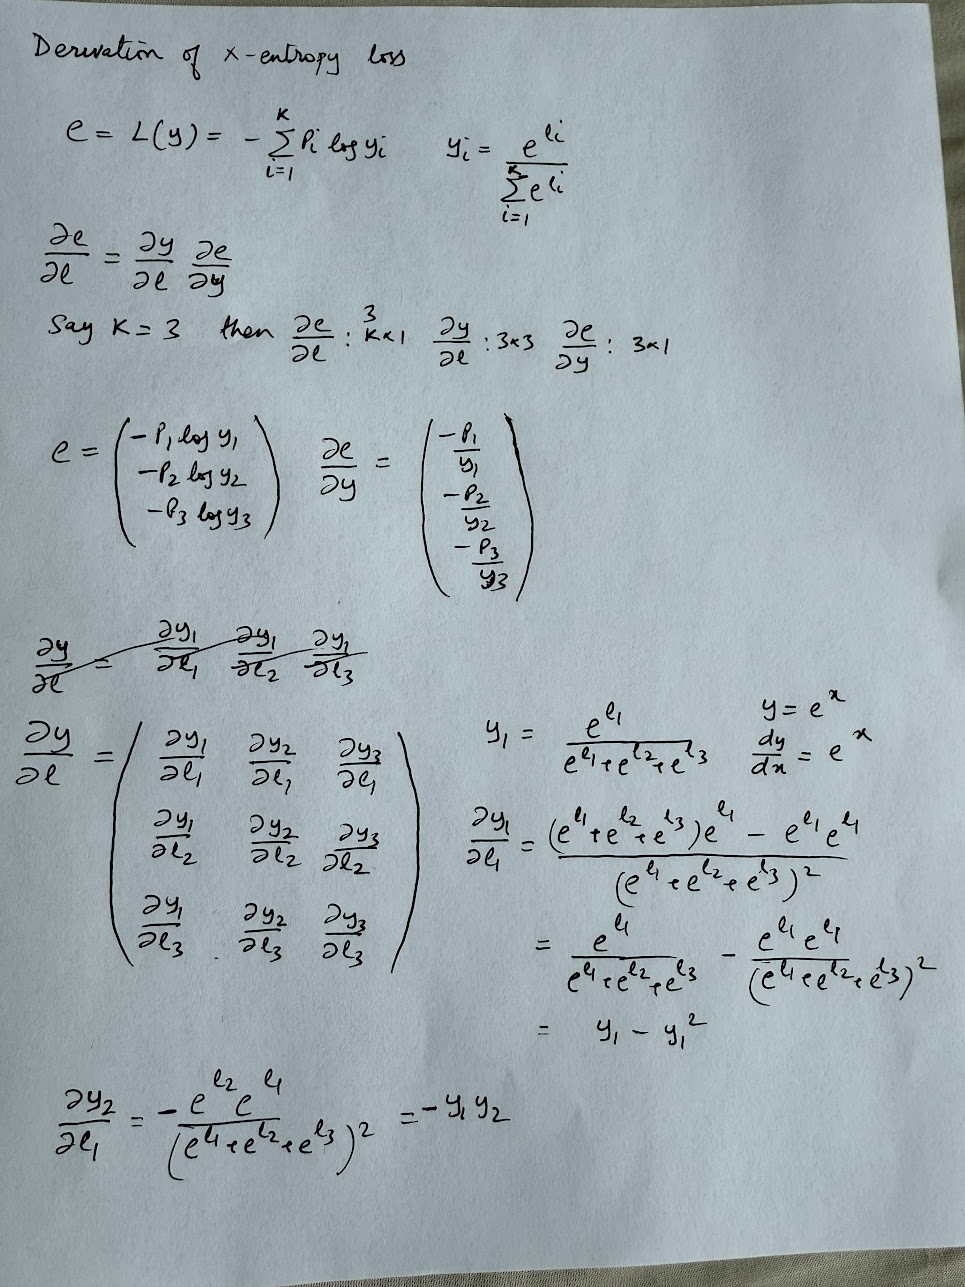 Derivation of x-entropy loss
e = L(y) = - \sum_{i=1}^{K} P_i log y_i    y_i = \frac{e^{l_i}}{\sum_{i=1}^{K} e^{l_i}}
\frac{∂e}{∂l} = \frac{∂y}{∂l} \frac{∂e}{∂y}
Say K = 3 then \frac{∂e}{∂l} : \overset{3}{K}×1   \frac{∂y}{∂l} : 3×3   \frac{∂e}{∂y} : 3×1
e = \begin{pmatrix} -P_1 log y_1 \\ -P_2 log y_2 \\ -P_3 log y_3 \end{pmatrix}   \frac{∂e}{∂y} = \begin{pmatrix} \frac{-P_1}{y_1} \\ \frac{-P_2}{y_2} \\ \frac{-P_3}{y_3} \end{pmatrix}
\frac{∂y}{∂l} = \frac{∂y_1}{∂l_1} \frac{∂y_1}{∂l_2} \frac{∂y_1}{∂l_3}
\frac{∂y}{∂l} = \begin{pmatrix} \frac{∂y_1}{∂l_1} & \frac{∂y_2}{∂l_1} & \frac{∂y_3}{∂l_1} \\ \frac{∂y_1}{∂l_2} & \frac{∂y_2}{∂l_2} & \frac{∂y_3}{∂l_2} \\ \frac{∂y_1}{∂l_3} & \frac{∂y_2}{∂l_3} & \frac{∂y_3}{∂l_3} \end{pmatrix}
y_1 = \frac{e^{l_1}}{e^{l_1}+e^{l_2}+e^{l_3}}
y = e^x
\frac{dy}{dx} = e^x
\frac{∂y_1}{∂l_1} = \frac{(e^{l_1}+e^{l_2}+e^{l_3})e^{l_1} - e^{l_1}e^{l_1}}{(e^{l_1}+e^{l_2}+e^{l_3})^2}
= \frac{e^{l_1}}{e^{l_1}+e^{l_2}+e^{l_3}} - \frac{e^{l_1}e^{l_1}}{(e^{l_1}+e^{l_2}+e^{l_3})^2}
= y_1 - y_1^2
\frac{∂y_2}{∂l_1} = \frac{-e^{l_2}e^{l_1}}{(e^{l_1}+e^{l_2}+e^{l_3})^2} = -y_1 y_2